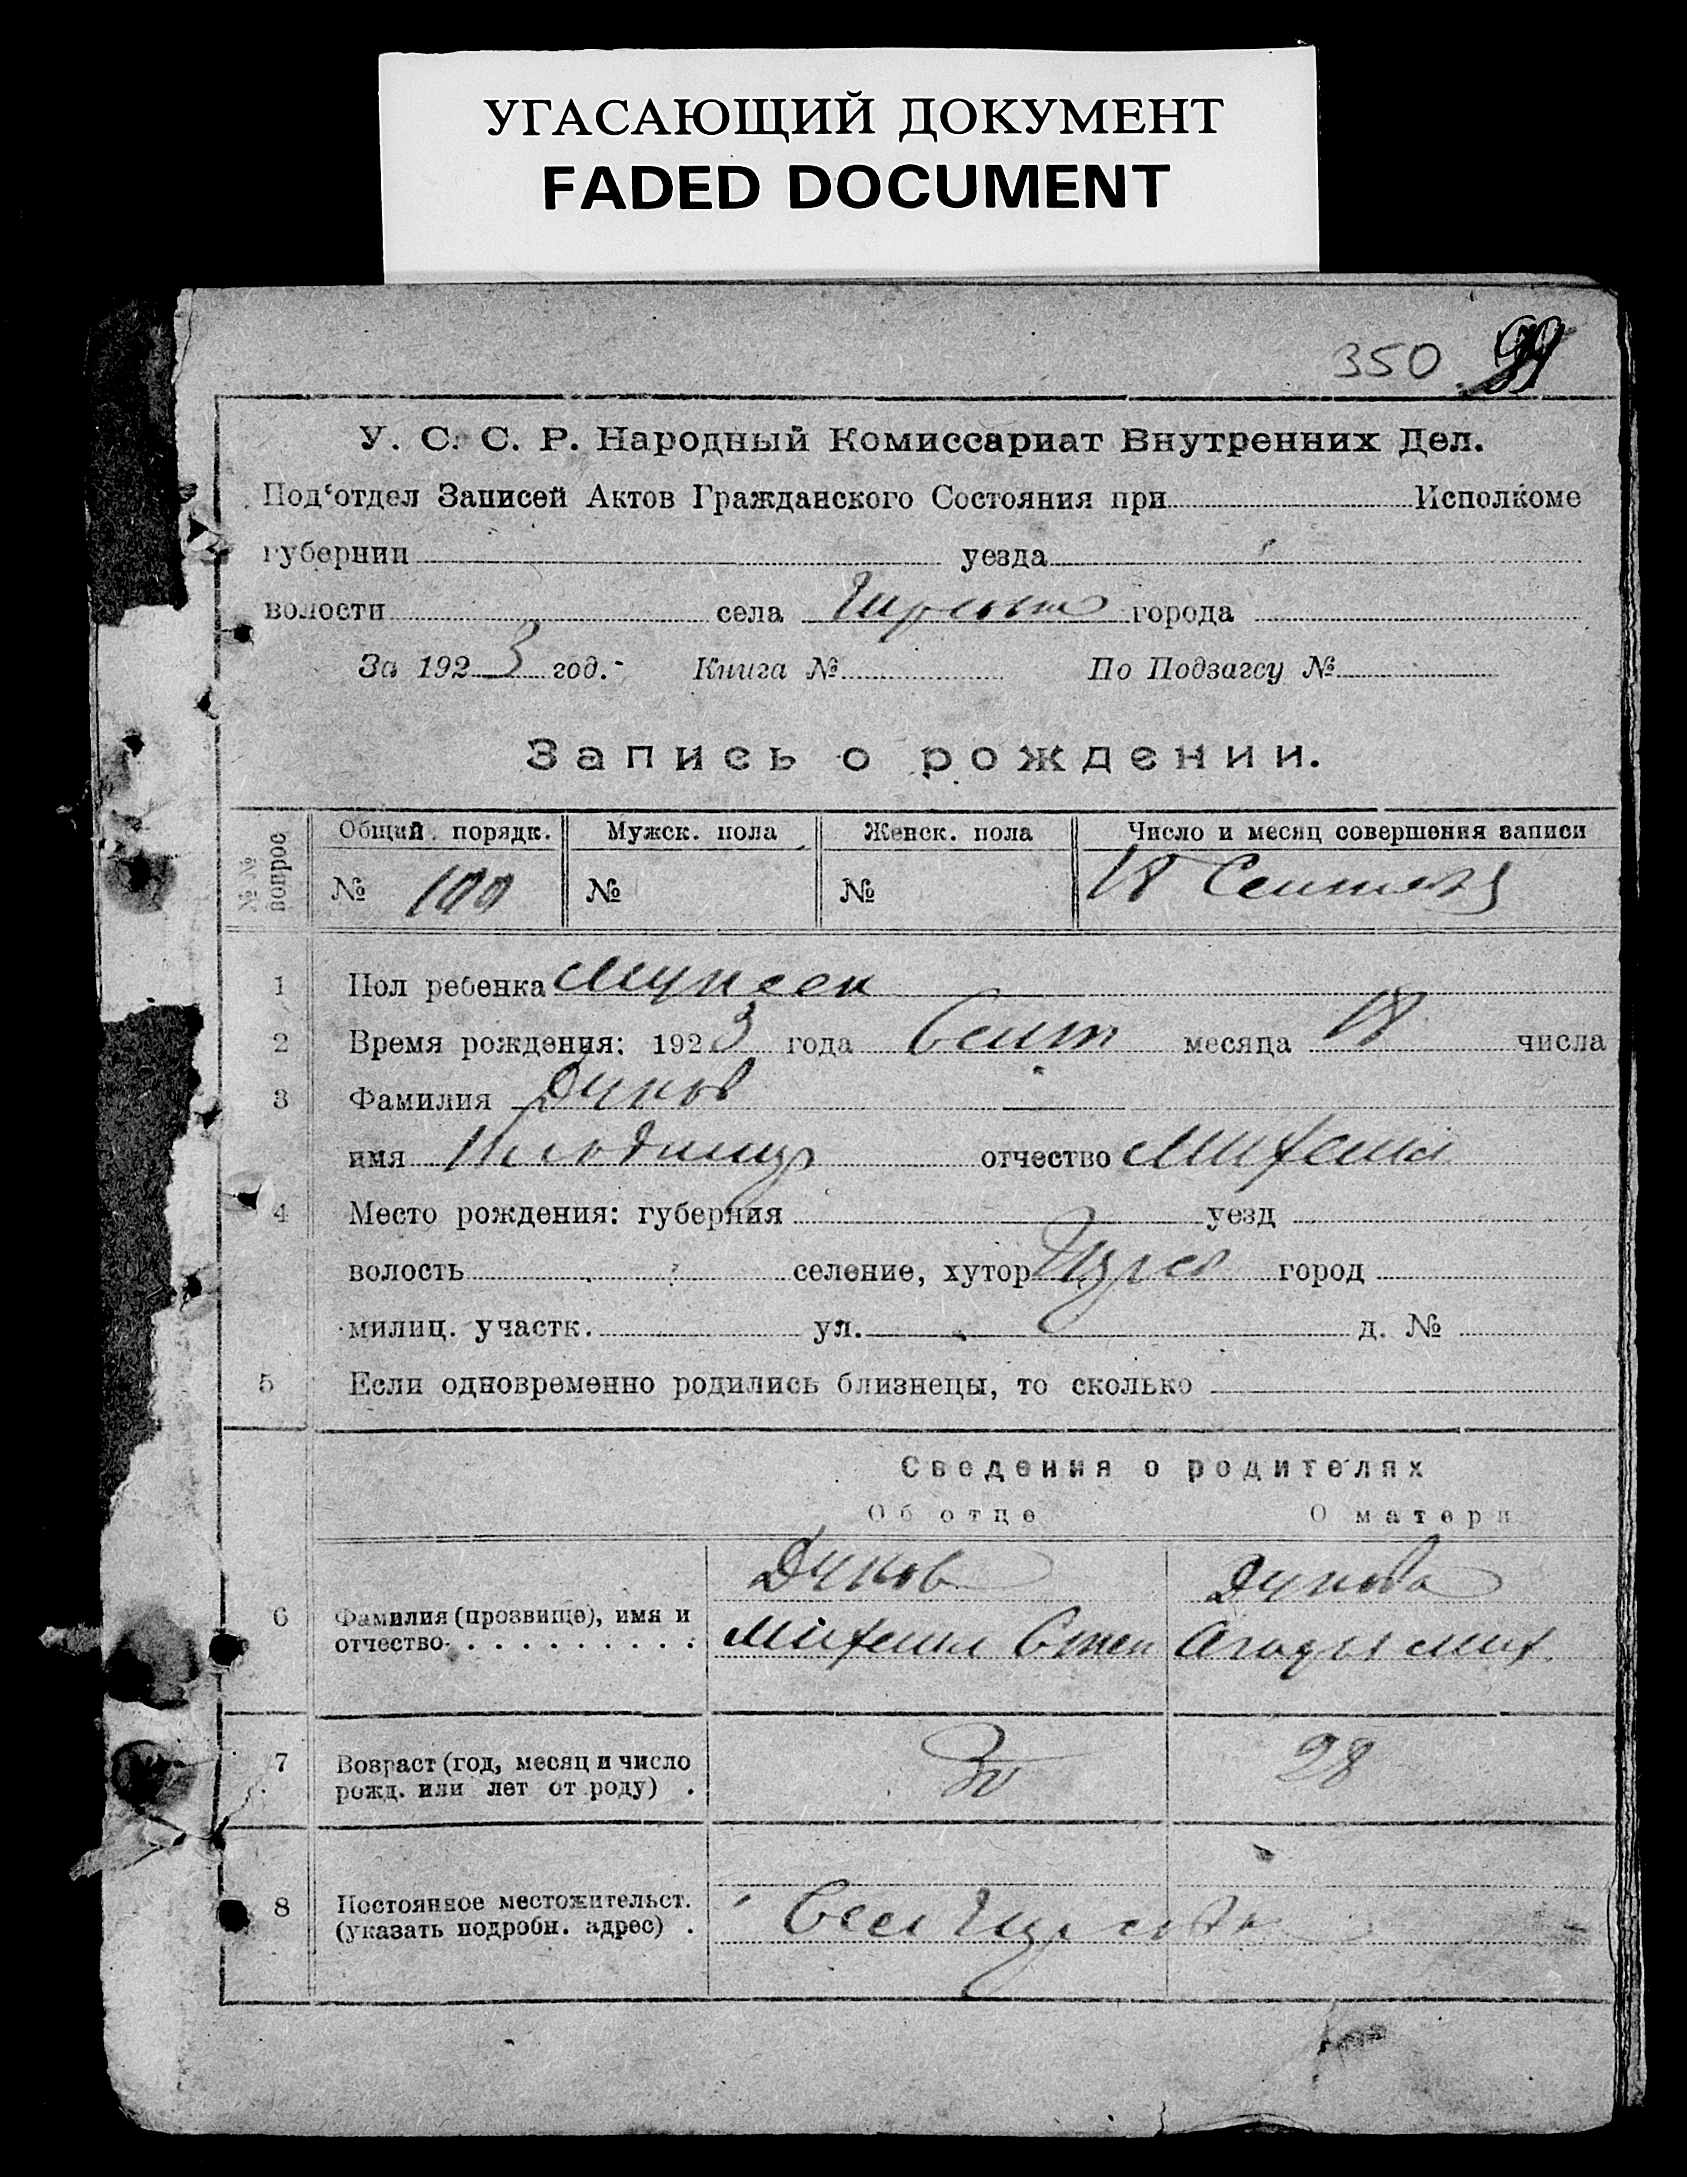 УГАСАЮЩИЙ ДОКУМЕНТ
FADED DOCUMENT
350 99
У. С. С. Р. Народный Комиссариат Внутренних Дел.
Под'отдел Записей Актов Гражданского Состояния при Исполкоме
губернии уезда
волости села города
За 1923 год. Книга № По Подзагсу №
Запись о рождении.
№№ вопрос Общий порядк. Мужск. пола Женск. пола Число и месяц совершения записи
№ 100 № № 18 Сентяб
1 Пол ребенка Мужск
2 Время рождения: 1923 года Сент месяца 18 числа
3 Фамилия Дунов
имя Владимир отчество Михаил
4 Место рождения: губерния уезд
волость селение, хутор город
милиц. участк. ул. д. №
5 Если одновременно родились близнецы, то сколько
Сведения о родителях
Об отце О матери
Дунов Дунова
6 Фамилия (прозвище), имя и
отчество Михаил Степ Агафья Мих.
7 Возраст (год, месяц и число
рожд. или лет от роду) 30 28
8 Постоянное местожительст.
(указать подробн. адрес) Село